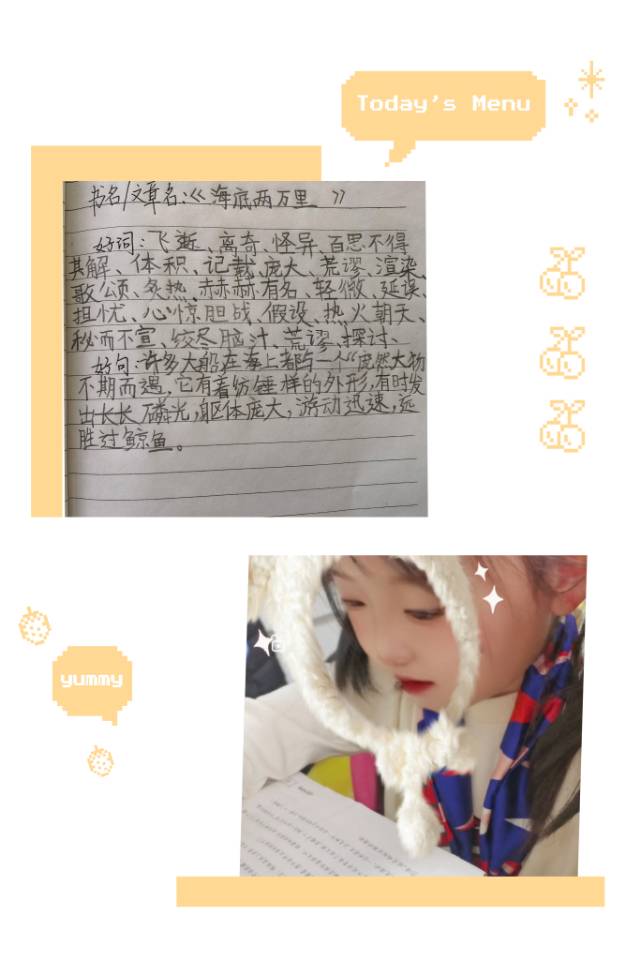 Today's Menu
书名/文章名:《海底两万里》
好词:飞逝、离奇、怪异、百思不得
其解、体积、记载、庞大、荒谬、渲染、
歌颂、炙热、赫赫有名、轻微、延误、
担忧、心惊胆战、假设、热火朝天、
秘而不宣、绞尽脑汁、荒谬、探讨、
好句:许多大船在海上都与一个“庞然大物
不期而遇,它有着纺锤样的外形,有时发
出长长磷光,躯体庞大,游动迅速,远
胜过鲸鱼。
yummy